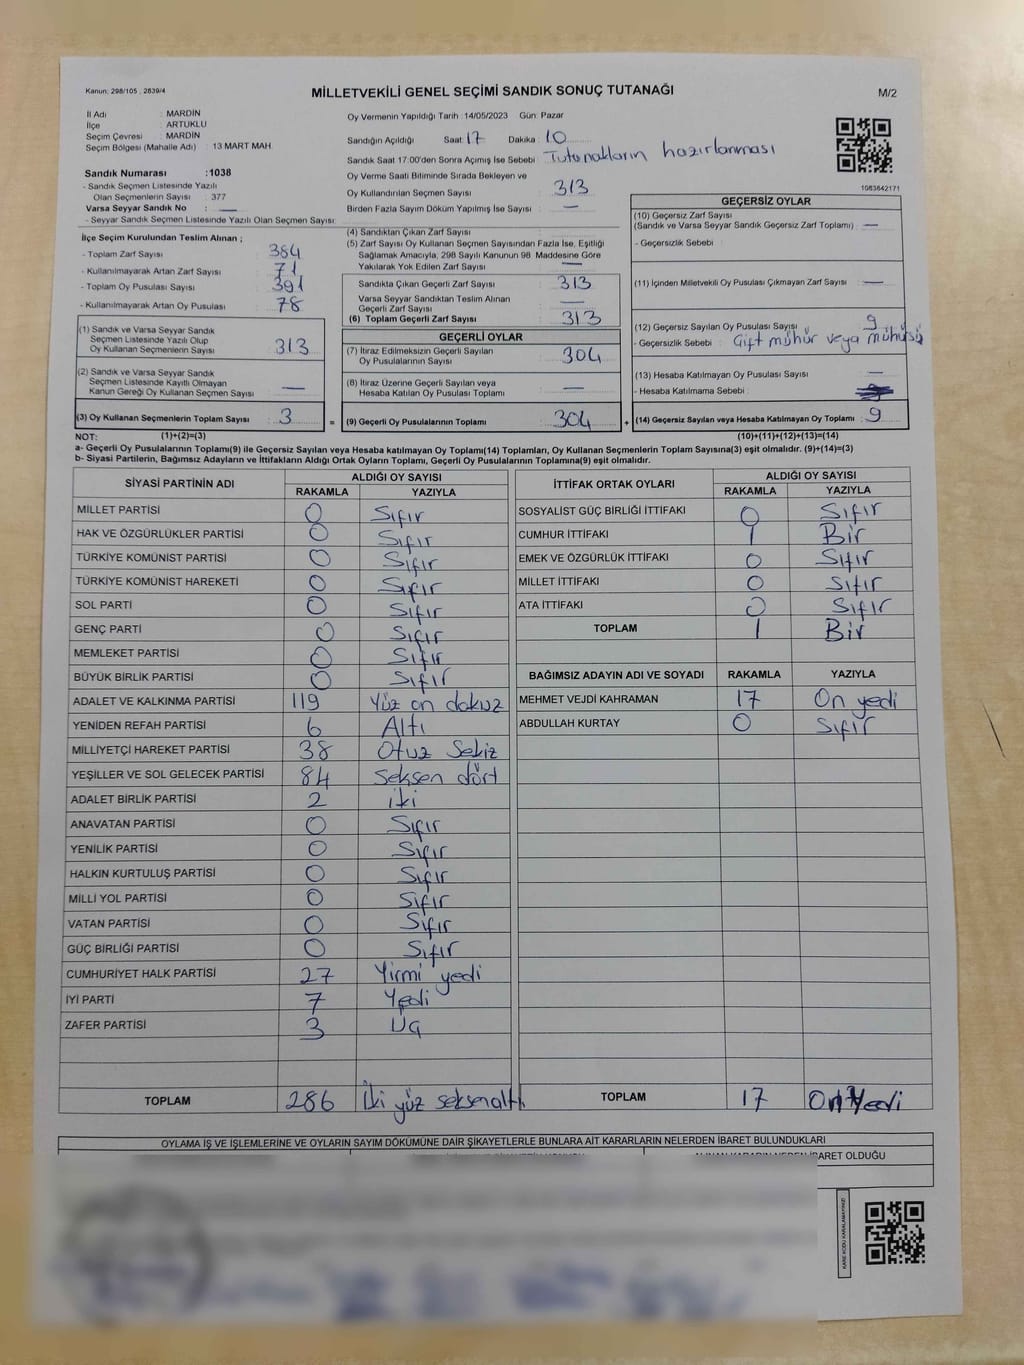 Kanun: 298/105 , 2839/4
MİLLETVEKİLİ GENEL SEÇİMİ SANDIK SONUÇ TUTANAĞI
M/2
İl Adı : MARDİN
İlçe : ARTUKLU
Seçim Çevresi : MARDİN
Seçim Bölgesi (Mahalle Adı) : 13 MART MAH.
Sandık Numarası :1038
- Sandık Seçmen Listesinde Yazılı
Olan Seçmenlerin Sayısı : 377
Varsa Seyyar Sandık No : —
- Seyyar Sandık Seçmen Listesinde Yazılı Olan Seçmen Sayısı:
Oy Vermenin Yapıldığı Tarih :14/05/2023 Gün: Pazar
Sandığın Açıldığı Saat: 17 Dakika : 10
Sandık Saat 17.00'den Sonra Açımış İse Sebebi : Tutanakların hazırlanması
Oy Verme Saati Bitiminde Sırada Bekleyen ve
Oy Kullandırılan Seçmen Sayısı : 313
Birden Fazla Sayım Döküm Yapılmış İse Sayısı : —
1083642171
İlçe Seçim Kurulundan Teslim Alınan ;
- Toplam Zarf Sayısı : 384
- Kullanılmayarak Artan Zarf Sayısı : 71
- Toplam Oy Pusulası Sayısı : 391
- Kullanılmayarak Artan Oy Pusulası : 78
(1) Sandık ve Varsa Seyyar Sandık
Seçmen Listesinde Yazılı Olup
Oy Kullanan Seçmenlerin Sayısı : 313
(2) Sandık ve Varsa Seyyar Sandık
Seçmen Listesinde Kayıtlı Olmayan
Kanun Gereği Oy Kullanan Seçmen Sayısı : —
(3) Oy Kullanan Seçmenlerin Toplam Sayısı : 3
(4) Sandıktan Çıkan Zarf Sayısı :
(5) Zarf Sayısı Oy Kullanan Seçmen Sayısından Fazla İse, Eşitliği
Sağlamak Amacıyla, 298 Sayılı Kanunun 98. Maddesine Göre
Yakılarak Yok Edilen Zarf Sayısı : —
Sandıkta Çıkan Geçerli Zarf Sayısı : 313
Varsa Seyyar Sandıktan Teslim Alınan
Geçerli Zarf Sayısı : —
(6) Toplam Geçerli Zarf Sayısı : 313
GEÇERLİ OYLAR
(7) İtiraz Edilmeksizin Geçerli Sayılan
Oy Pusulalarının Sayısı : 304
(8) İtiraz Üzerine Geçerli Sayılan veya
Hesaba Katılan Oy Pusulası Toplamı : —
= (9) Geçerli Oy Pusulalarının Toplamı : 304
GEÇERSİZ OYLAR
(10) Geçersiz Zarf Sayısı
(Sandık ve Varsa Seyyar Sandık Geçersiz Zarf Toplamı) : —
- Geçersizlik Sebebi :
(11) İçinden Milletvekili Oy Pusulası Çıkmayan Zarf Sayısı : —
(12) Geçersiz Sayılan Oy Pusulası Sayısı : 9
- Geçersizlik Sebebi : Çift mühür veya mühürsüz
(13) Hesaba Katılmayan Oy Pusulası Sayısı : —
- Hesaba Katılmama Sebebi :
+ (14) Geçersiz Sayılan veya Hesaba Katılmayan Oy Toplamı : 9
NOT: (1)+(2)=(3) (10)+(11)+(12)+(13)=(14)
a- Geçerli Oy Pusulalarının Toplamı(9) ile Geçersiz Sayılan veya Hesaba katılmayan Oy Toplamı(14) Toplamları, Oy Kullanan Seçmenlerin Toplam Sayısına(3) eşit olmalıdır. (9)+(14)=(3)
b- Siyasi Partilerin, Bağımsız Adayların ve İttifakların Aldığı Ortak Oyların Toplamı, Geçerli Oy Pusulalarının Toplamına(9) eşit olmalıdır.
SİYASİ PARTİNİN ADI
ALDIĞI OY SAYISI
RAKAMLA YAZIYLA
MİLLET PARTİSİ 0 Sıfır
HAK VE ÖZGÜRLÜKLER PARTİSİ 0 Sıfır
TÜRKİYE KOMÜNİST PARTİSİ 0 Sıfır
TÜRKİYE KOMÜNİST HAREKETİ 0 Sıfır
SOL PARTİ 0 Sıfır
GENÇ PARTİ 0 Sıfır
MEMLEKET PARTİSİ 0 Sıfır
BÜYÜK BİRLİK PARTİSİ 0 Sıfır
ADALET VE KALKINMA PARTİSİ 119 Yüz on dokuz
YENİDEN REFAH PARTİSİ 6 Altı
MİLLİYETÇİ HAREKET PARTİSİ 38 Otuz Sekiz
YEŞİLLER VE SOL GELECEK PARTİSİ 84 Seksen dört
ADALET BİRLİK PARTİSİ 2 iki
ANAVATAN PARTİSİ 0 Sıfır
YENİLİK PARTİSİ 0 Sıfır
HALKIN KURTULUŞ PARTİSİ 0 Sıfır
MİLLİ YOL PARTİSİ 0 Sıfır
VATAN PARTİSİ 0 Sıfır
GÜÇ BİRLİĞİ PARTİSİ 0 Sıfır
CUMHURİYET HALK PARTİSİ 27 Yirmi yedi
İYİ PARTİ 7 Yedi
ZAFER PARTİSİ 3 Üç
TOPLAM 286 İki yüz seksenaltı
İTTİFAK ORTAK OYLARI
ALDIĞI OY SAYISI
RAKAMLA YAZIYLA
SOSYALİST GÜÇ BİRLİĞİ İTTİFAKI 0 Sıfır
CUMHUR İTTİFAKI 1 Bir
EMEK VE ÖZGÜRLÜK İTTİFAKI 0 Sıfır
MİLLET İTTİFAKI 0 Sıfır
ATA İTTİFAKI 0 Sıfır
TOPLAM 1 Bir
BAĞIMSIZ ADAYIN ADI VE SOYADI RAKAMLA YAZIYLA
MEHMET VEJDİ KAHRAMAN 17 On yedi
ABDULLAH KURTAY 0 Sıfır
TOPLAM 17 On Yedi
OYLAMA İŞ VE İŞLEMLERİNE VE OYLARIN SAYIM DÖKÜMÜNE DAİR ŞİKAYETLERLE BUNLARA AİT KARARLARIN NELERDEN İBARET BULUNDUKLARI
İBARET OLDUĞU
KARE KODU KARALAMAYINIZ!